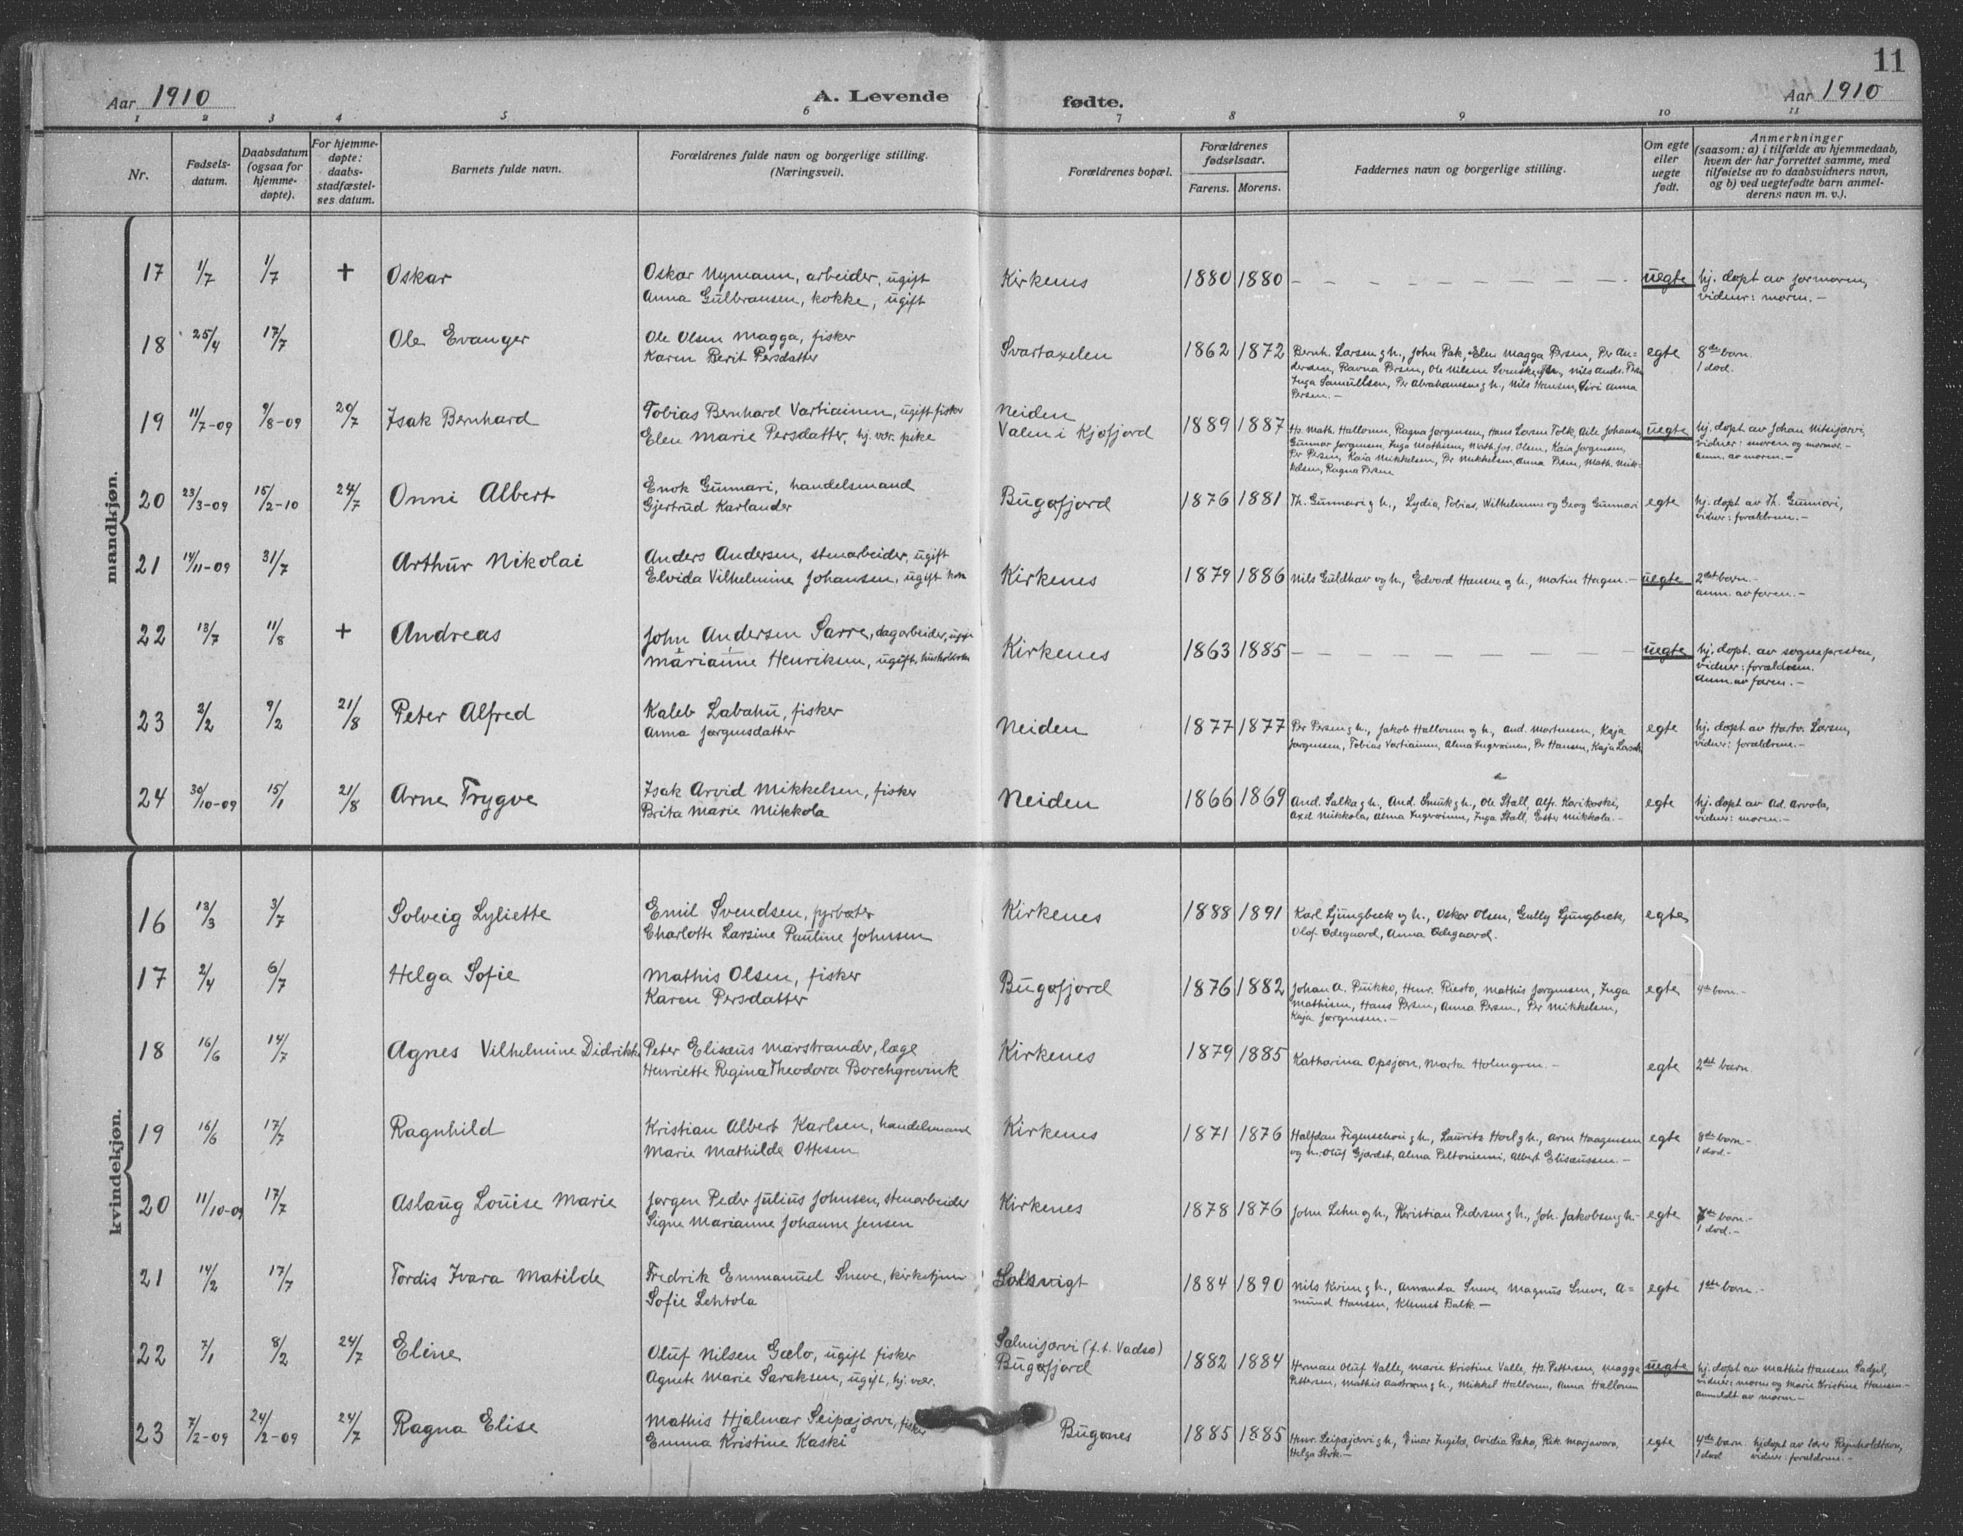 11
Aar 1910 A. Levende fødte. Aar 1910
1 2 3 4 5 6 7 8 9 10 11
Nr.
Fødsels-
datum.
Daabsdatum
(ogsaa for
hjemme-
døpte).
For hjemme-
døpte:
daabs-
stadfæstel-
ses datum.
Barnets fulde navn.
Forældrenes fulde navn og borgerlige stilling.
(Næringsvei).
Forældrenes bopæl.
Forældrenes
fødselsaar.
Farens. Morens.
Faddernes navn og borgerlige stilling.
Om egte
eller
uegte
født.
Anmerkninger
(saasom: a) i tilfælde av hjemmedaab,
hvem der har forrettet samme, med
tilføielse av to daabsvidners navn,
og b) ved uegtefødte barn anmel-
derens navn m. v.).
mandkjøn.
17 1/7 1/7 + Oskar
Oskar Nymann, arbeider, ugift
Anna Gulbransen, kokke, ugift
Kirkenes 1880 1880 — uegte
hj. døpt av jormoren,
vidner: moren.-
18 25/4 17/7 Ole Evanger
Ole Olsen Magga, fisker
Karen Berit Persdatter
Svartaxelen 1862 1872
Bernh. Larsen g h., John Pak, Elen Magga Persen, Per An-
dersen, Ravna Persen, Ole Nilsen
Inga Samuelsen, Per Abrahamsen g h., Nils Hansen, Siri Anna
Persen.-
egte
8de barn
1 død.
19 11/7-09 9/8-09 20/7 Isak Bernhard
Tobias Bernhard Vartiainen, ugift fisker
Elen Marie Persdatter, hj. vær. pike
Neiden
Valen i Kjøfjord
1889 1887
Hs. Math. Hallonen, Ragna Jørgensen, Hans Larsen Tolk, Aile Johansen
Gunnar Jørgensen, Inga Mathisen, Math. Jos. Olsen, Kaia Jørgensen,
Per Persen, Kaia Mikkelsen, Per Mikkelsen, Anna Persen, Math. Mik-
kelsen, Ragna Persen
uegte
hj. døpt av Johan Nitsijærvi,
vidner: moren og mormor.-
anm. av moren.-
20 23/3-09 15/2-10 24/7 Onni Albert
Enok Gunnari, handelsmand
Gjertrud Karlander
Bugøfjord 1876 1881
Th. Gunnari g h., Lydia, Tobias, Wilhelmine og Georg Gunnari
egte
hj. døpt av Th. Gunnari,
vidner: forældrene.-
21 14/11-09 31/7 Arthur Nikolai
Anders Andersen, stenarbeider, ugift
Elvida Vilhelmine Johansen, ugift
Kirkenes 1879 1886
Nils Guldhav og h., Edvard Hansen g h., Martin Hagen.-
uegte
2det barn.-
anm. av faren.-
22 13/7 11/8 + Andreas
John Andersen Sarre, dagarbeider, ugift
Marianne Henriksen, ugift,
Kirkenes 1863 1885 — uegte
hj. døpt. av sognepresten,
vidner: forældrene.
anm. av faren.-
23 2/2 9/2 21/8 Peter Alfred
Kaleb Labahu, fisker
Anna Jørgensdatter
Neiden 1877 1877
Per Persen g h., Jakob Hallonen g h., And. Mortensen, Kaja
Jørgensen, Tobias Vartiainen, Alma Ingervinen, Per Hansen, Kaja Larsen
egte
hj. døpt av Hartv. Larsen,
vidner: forældrene.-
24 30/10-09 15/1 21/8 Arne Trygve
Isak Arvid Mikkelsen, fisker
Brita Marie Mikkola
Neiden 1866 1869
And. Salka g h., And. Smuk g h., Ole Stall, Alfr. Karikoski,
Axel Mikkola, Alma Ingervinen, Inga Stall, Ester Mikkola.-
egte
hj. døpt av Ad. Arvola,
vidner: moren.-
kvindekjøn.
16 13/3 3/7 Solveig Lyliette
Emil Svendsen, fyrbøter
Charlotte Larsine Pauline Johnsen
Kirkenes 1888 1891
Karl Ljungbeck og h., Oskar Olsen, Gully Ljungbeck,
Olof Ødegaard, Anna Ødegaard.
egte
17 2/4 6/7 Helga Sofie
Mathis Olsen, fisker
Karen Persdatter
Bugøfjord 1876 1882
Johan A. Pukko, Henr. Riesto, Mathis Jørgensen, Inga
Mathisen, Hans Persen, Anna Persen, Per Mikkelsen,
Kaja Jørgensen.-
egte
4de barn.-
18 16/6 14/7 Agnes Vilhelmine Didrikke
Peter Elisæus Marstrander, læge
Henriette Regina Theodora Borchgrevink
Kirkenes 1879 1885
Katharina Opsjøn, Marta Holmgren.-
egte
2det barn.
19 16/6 17/7 Ragnhild
Kristian Albert Karlsen, handelsmand
Marie Mathilde Ottesen
Kirkenes 1871 1876
Halfdan Figenschou g h., Lauritz Hoel g h., Arne Haagensen
og h. Oluf Gjærdet, Alma Peltoniemi, Albert Elisæussen.-
egte
8de barn.-
1 død.-
20 11/10-09 17/7 Aslaug Louise Marie
Jørgen Peder Julius Johnsen, stenarbeider
Signe Marianne Johanne Jensen
Kirkenes 1878 1876
John Lehn g h., Kristian Pedersen g h., Joh. Jakobsen g h.-
egte
7de barn.-
1 død.-
21 14/2 17/7 Tordis Ivara Matilde
Fredrik Emmanuel Sneve, kirketjener
Sofie Lehtola
Solsvigt 1884 1890
Nils Kvien g h., Amanda Sneve, Magnus Sneve, A-
mund Hansen, Klemet Balk.-
egte
1ste barn.-
22 7/1 8/2 24/7 Eline
Oluf Nilsen Gælo, ugift fisker
Agnete Marie Saraksen, ugift, hj. vær.
Salmijærvi (f.t. Vadsø)
Bugøfjord
1882 1884
Herman Oluf Valle, Marie Kristine Valle, Hs. Pettersen, Magga
Pettersen, Mathis Andersen g h., Mikkel Hallonen, Anna Hallonen
uegte
hj. døpt av Mathis Hansen Sadjel,
vidner: moren og Marie Kristine Hansen-
anmeldt av moren.-
23 7/2-09 24/2-09 24/7 Ragna Elise
Mathis Hjalmar Seipæjærvi, fisker
Emma Kristine Kaski
Bugønes 1885 1885
Henr. Seipæjærvi g h., Einar Ingilæ, Ovidia Pako, Rik. Marjavara,
Helga Stok.-
egte
4de barn. hj. døpt av lærer Reinholdtsen,
1 død vidner: forældrene.-